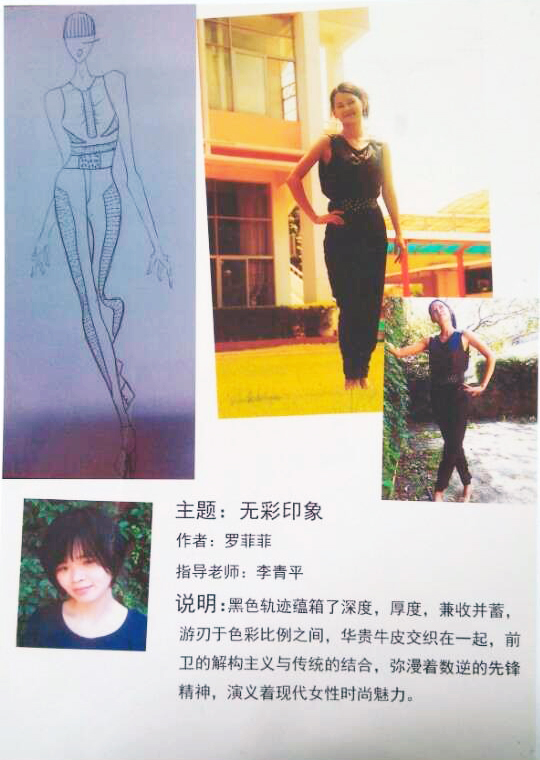 主题：无彩印象
作者：罗菲菲
指导老师：李青平
说明:黑色轨迹蕴箱了深度，厚度，兼收并蓄，
游刃于色彩比例之间，华贵牛皮交织在一起，前
卫的解构主义与传统的结合，弥漫着数逆的先锋
精神，演义着现代女性时尚魅力。